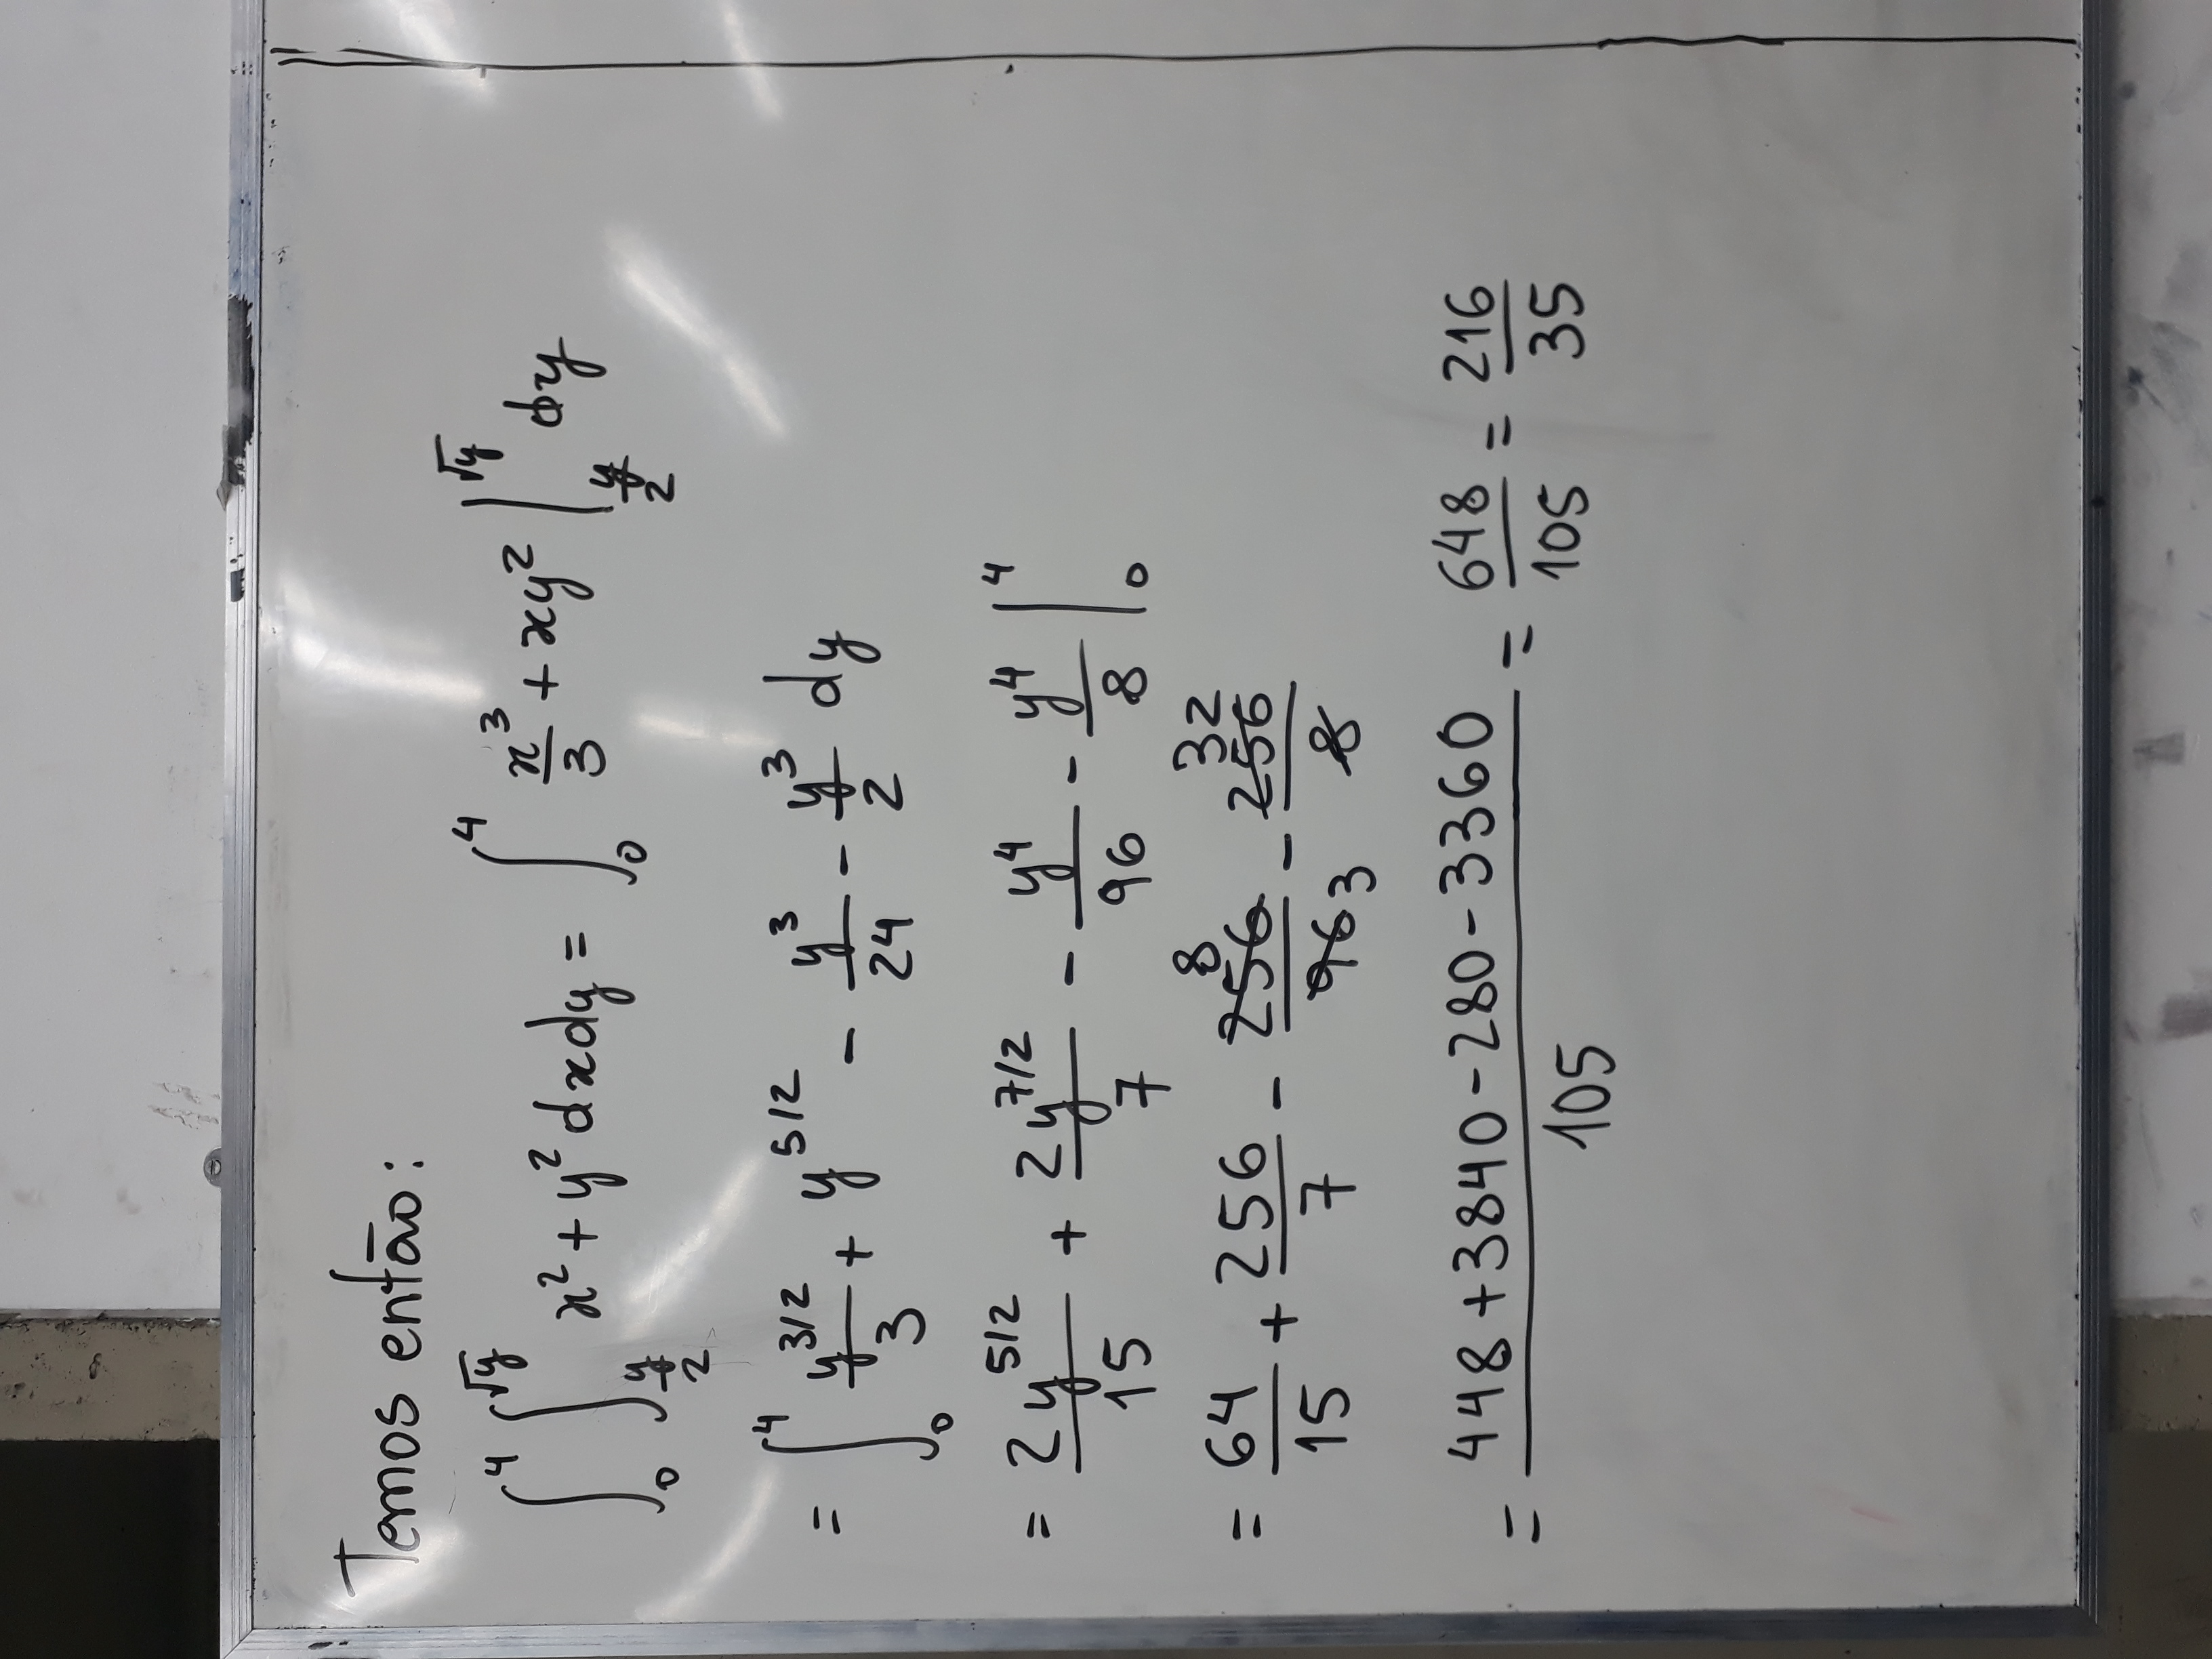 Temos então:
∫₀⁴ ∫_{y/2}^{√y} x² + y² dx dy = ∫₀⁴ x³/3 + xy² |_{y/2}^{√y} dy
= ∫₀⁴ y^{3/2}/3 + y^{5/2} - y³/24 - y³/2 dy
= 2y^{5/2}/15 + 2y^{7/2}/7 - y⁴/96 - y⁴/8 |₀⁴
= 64/15 + 256/7 - ~~256~~ 8/~~96~~ 3 - ~~256~~ 32/~~8~~
= (448 + 3840 - 280 - 3360)/105 = 648/105 = 216/35